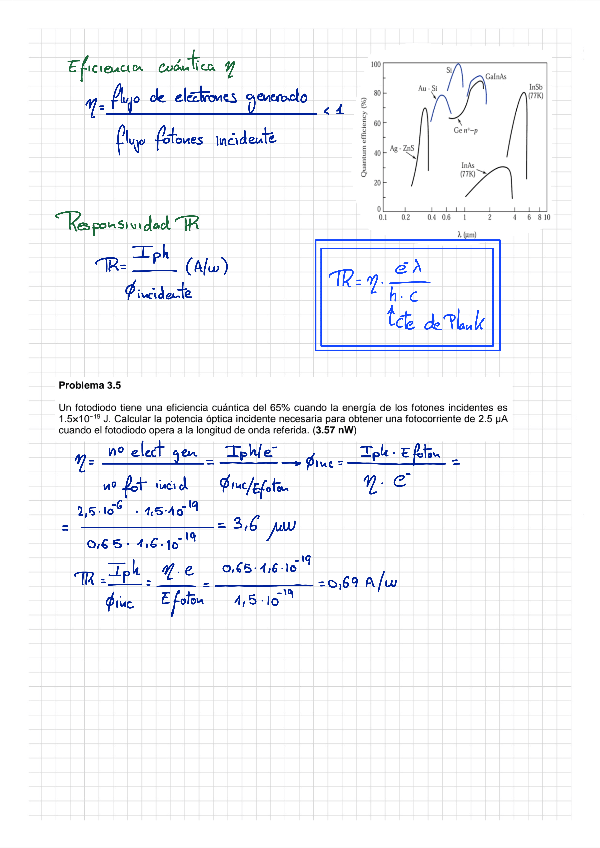 Eficiencia cuántica η
η = flujo de electrones generado / flujo fotones incidente < 1
100
80
60
40
20
0
Quantum efficiency (%)
0.1 0.2 0.4 0.6 1 2 4 6 8 10
λ (μm)
Si
Au - Si
GaInAs
InSb
(77K)
Ge n⁺–p
Ag - ZnS
InAs
(77K)
Responsividad ℝ
ℝ = Iph / ϕincidente (A/w)
ℝ = η · e⁻ λ / h · c
cte de Plank
Problema 3.5
Un fotodiodo tiene una eficiencia cuántica del 65% cuando la energía de los fotones incidentes es
1.5x10⁻¹⁹ J. Calcular la potencia óptica incidente necesaria para obtener una fotocorriente de 2.5 μA
cuando el fotodiodo opera a la longitud de onda referida. (3.57 nW)
η = nº elect gen / nº fot incid = Iph/e⁻ / ϕinc/Efoton → ϕinc = Iph · Efoton / η · e⁻ =
= 2,5·10⁻⁶ · 1,5·10⁻¹⁹ / 0,65 · 1,6·10⁻¹⁹ = 3,6 μw
ℝ = Iph / ϕinc = η · e / Efoton = 0,65·1,6·10⁻¹⁹ / 1,5·10⁻¹⁹ = 0,69 A/w